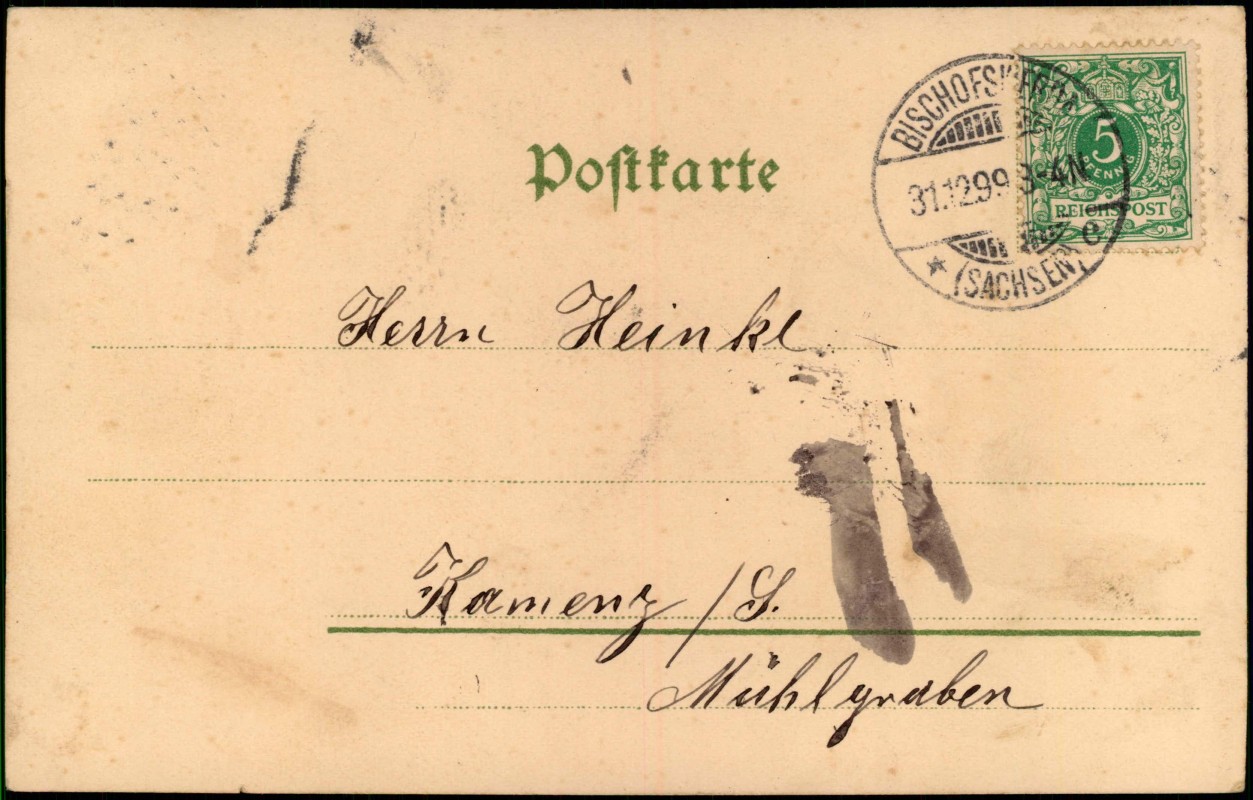 Postkarte
BISCHOFSWERDA
31.12.99 3-4N
* (SACHSEN) c
5
PFENNIG
REICHSPOST
Herrn Heinkl
Kamenz / S.
Mühlgraben